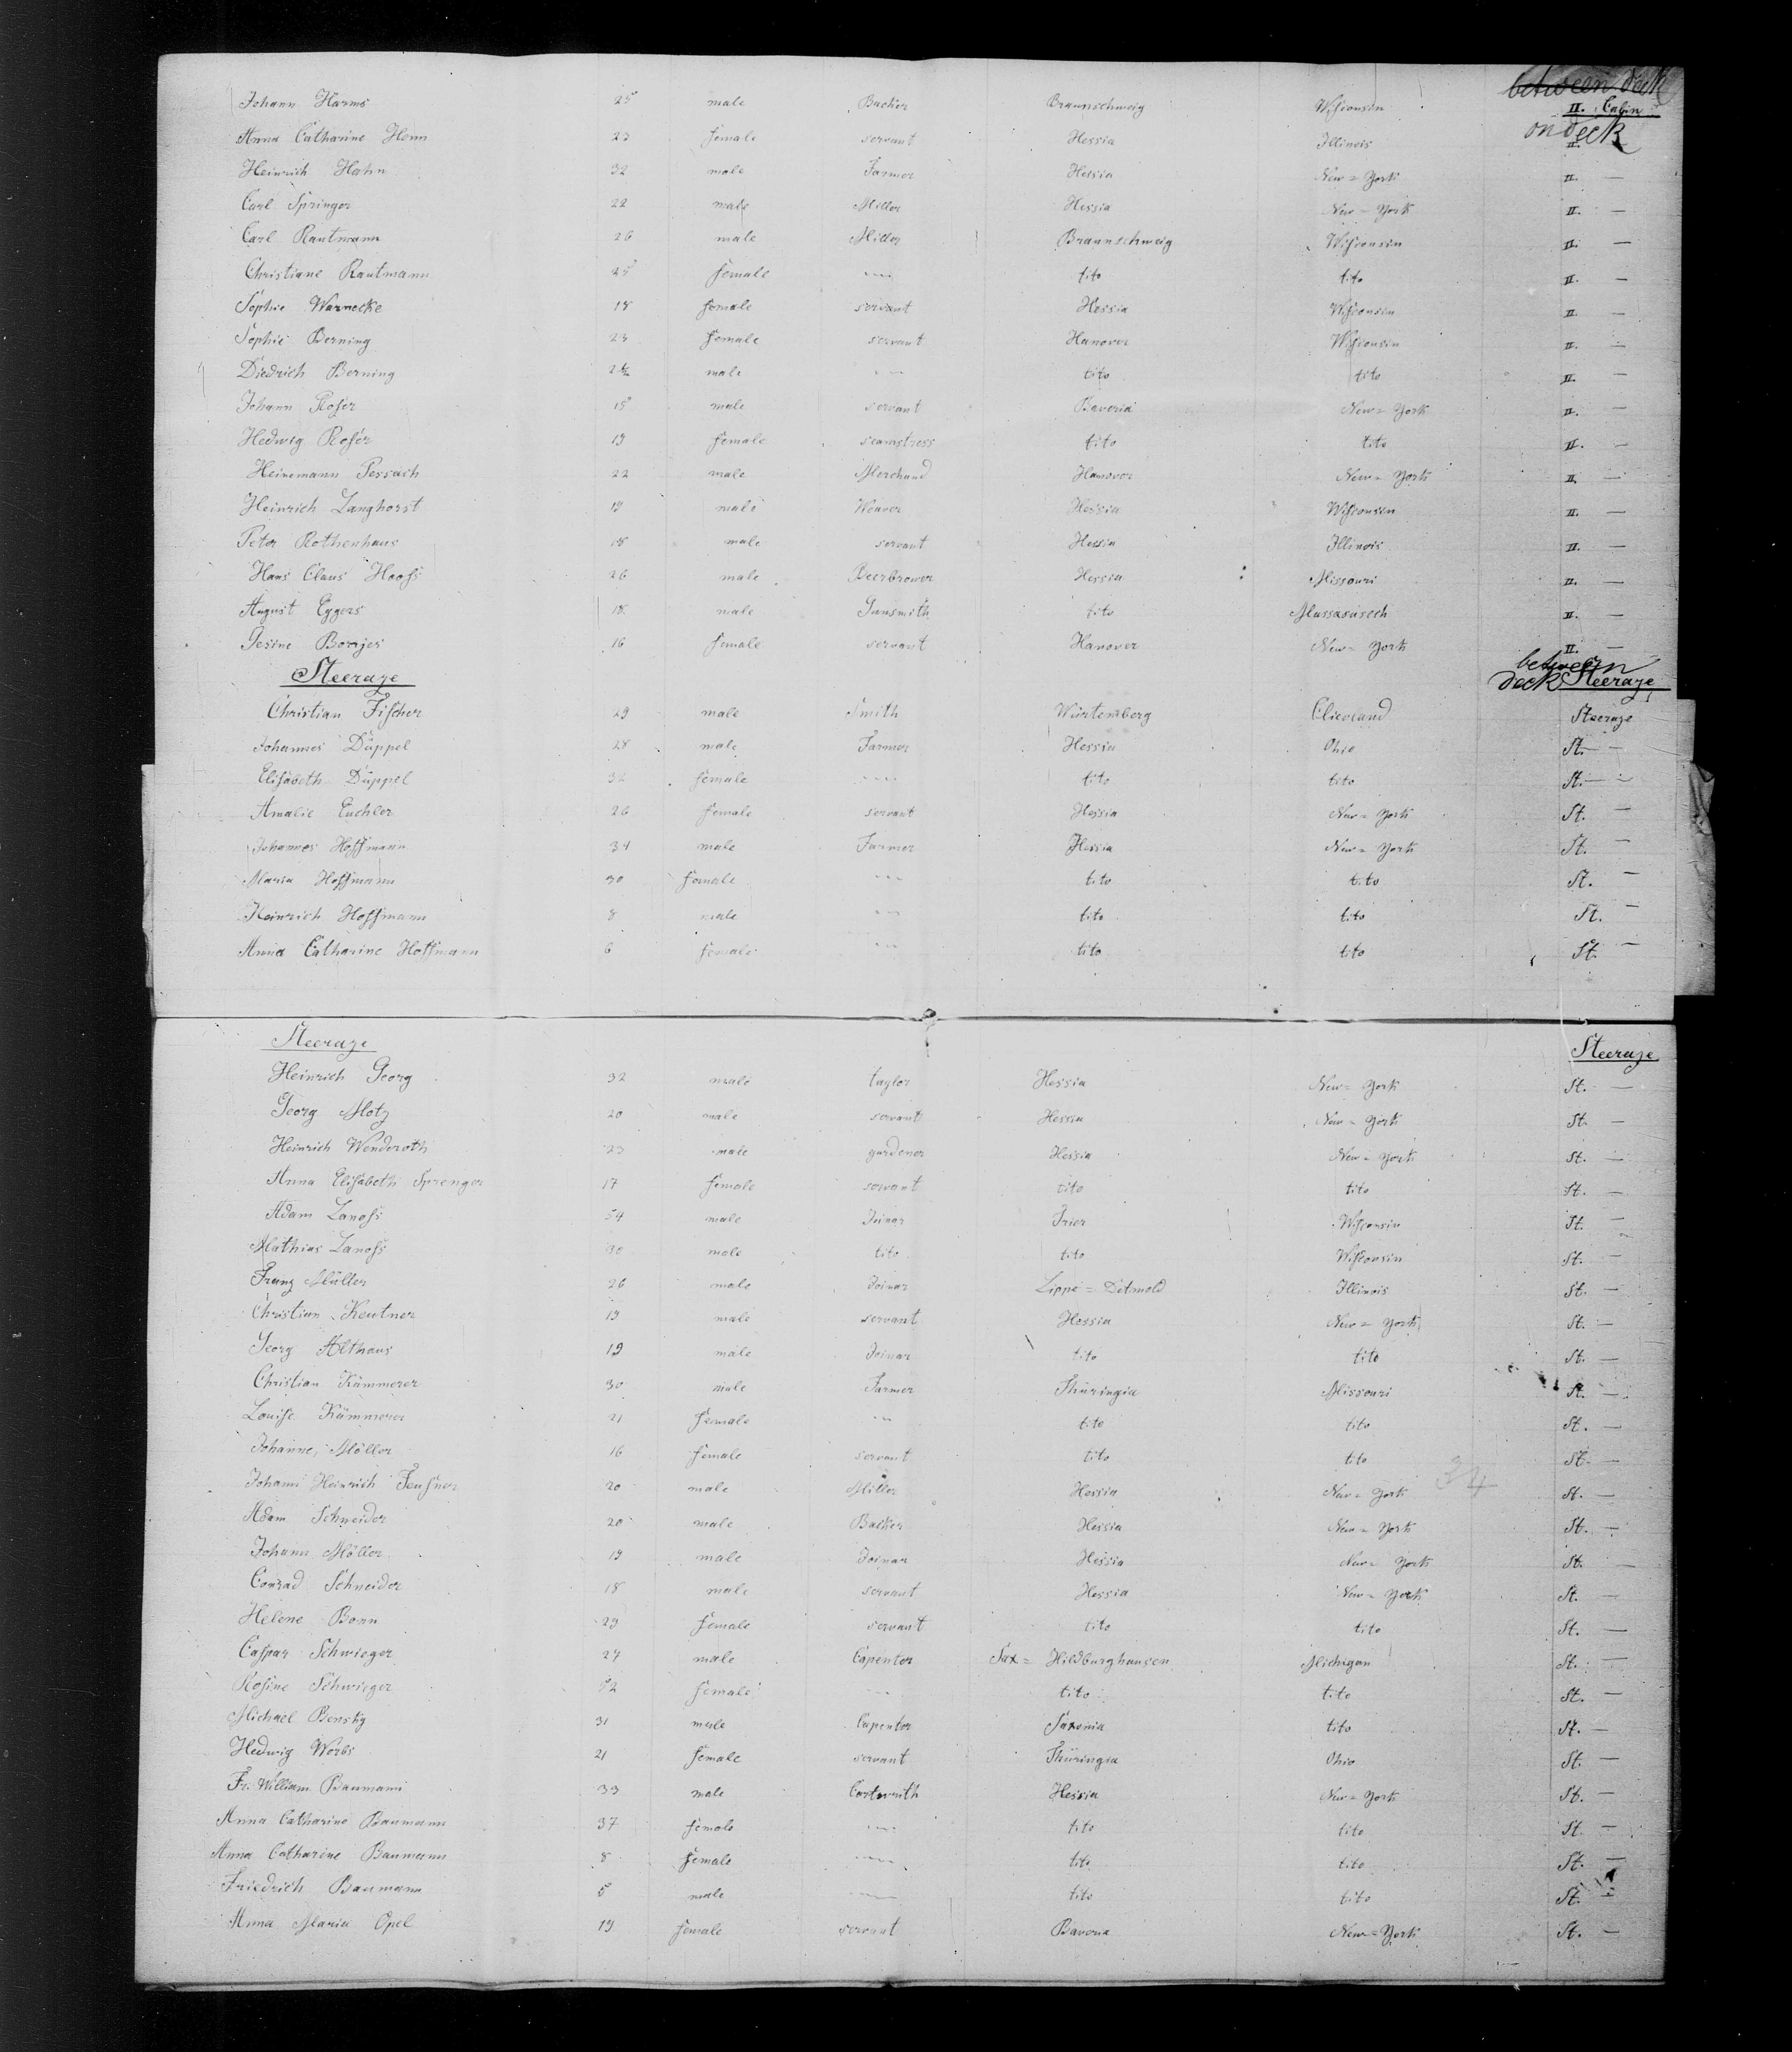 between deck
Johann Harms 25 male Backer Braunschweig Wisconsin II. Cabin
on deck
Anna Catharine Henn 23 female servant Hessia Illinois II.
Heinrich Hahn 32 male Farmer Hessia New = York II. —
Carl Springer 22 male Miller Hessia New = York II. —
Carl Rautmann 26 male Miller Braunschweig Wisconsin II. —
Christiane Rautmann 25 female ---- tito tito II. —
Sophie Warnecke 18 female servant Hessia Wisconsin II. —
Sophie Berning 23 female servant Hanover Wisconsin II. —
Diedrich Berning male --- tito tito II. —
Johann Roser 15 male servant Bavaria New = York II. —
Hedwig Roser 19 female seamstress tito tito II. —
Heinemann Pessach 22 male Merchand Hanover New = York II. —
Heinrich Langhorst 19 male Weaver Hessia Wisconsin II. —
Peter Rothenhaus 18 male servant Hessia Illinois II. —
Hans Claus Hoofs 26 male Beerbrower Hessia Missouri II. —
August Eggers 18 male Gunsmith tito Massasusech II. —
Gesine Borrjes 16 female servant Hanover New = York II. —
Steerage between deck Steerage
Christian Fischer 29 male Smith Würtemberg Clieveland Steerage
Johannes Düppel 28 male Farmer Hessia Ohio St. —
Elisabeth Düppel 32 female ---- tito tito St. —
Amalie Euchler 26 female servant Hessia New = York St. —
Johannes Hoffmann 34 male Farmer Hessia New = York St. —
Maria Hoffmann 30 female --- tito tito St. —
Heinrich Hoffmann 8 male --- tito tito St. —
Anna Catharine Hoffmann 6 female --- tito tito St. —
Steerage Steerage
Heinrich Georg 32 male taylor Hessia New = York St. —
Georg Motz 20 male servant Hessia New = York St. —
Heinrich Wenderoth 23 male gardener Hessia New = York St. —
Anna Elisabeth Sprenger 17 female servant tito tito St. —
Adam Lanofs 54 male Joinar Trier Wisconsin St. —
Mathias Lanofs 30 male tito tito Wisconsin St. —
Franz Müller 26 male Joinar Lippe = Detmold Illinois St. —
Christian Keutner 19 male servant Hessia New = York St. —
Georg Althaus 19 male Joinar tito tito St. —
Christian Kämmerer 30 male Farmer Thüringia Missouri St. —
Louise Kämmerer 21 female --- tito tito St. —
Johanne Möller 16 female servant tito tito St. —
Johann Heinrich Feusner 20 male Miller Hessia New = York 34 St. —
Adam Schneider 20 male Backer Hessia New = York St. —
Johann Möller 19 male Joinar Hessia New = York St. —
Conrad Schneider 18 male servant Hessia New = York St. —
Helene Bonn 29 female servant tito tito St. —
Caspar Schwieger 27 male Capenter Sax = Hildburghausen Michigan St. —
Rosine Schwieger 52 female --- tito tito St. —
Michael 31 male Capenter Saxonia tito St. —
Hedwig Worbs 21 female servant Thüringia Ohio St. —
Fr. William Baumann 33 male Cartwrith Hessia New = York St. —
Anna Catharine Baumann 37 female ---- tito tito St. —
Anna Catharine Baumann 8 female ---- tito tito St. —
Friedrich Baumann 5 male ---- tito tito St. —
Anna Maria Opel 19 female servant Bavaria New = York St. —